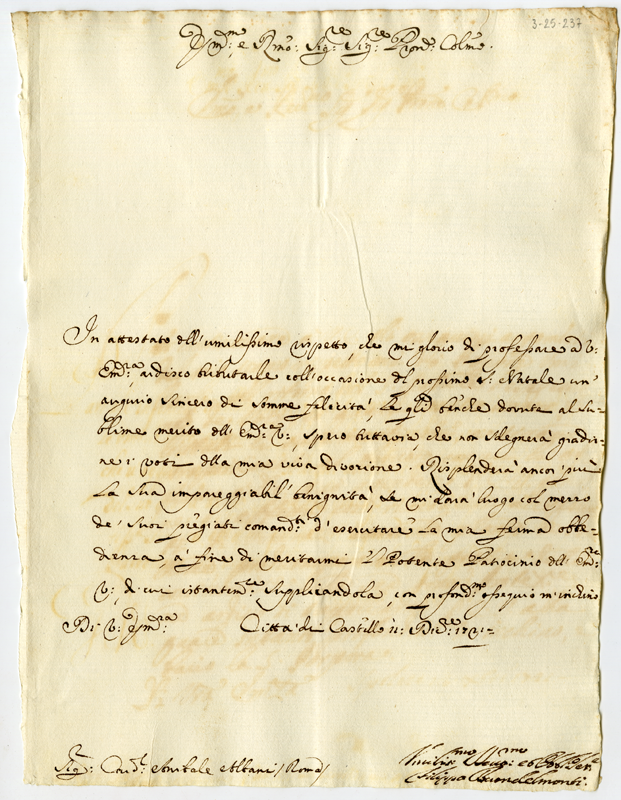 3-25-237
Em.mo e R.mo: Sig.re Sig.re Pron. Colmo.
In attestato dell'umilissimo rispetto, che mi glorio di professare a V:
Em.za, ardisco tributarle coll'occasione del prossimo S. Natale un'
augurio sincero di somme felicità, le q.li benche dovute al Su-
blime merito dell'Em.za V:, spero tuttavia, che non sdegnerà gradir-
ne i voti della mia viva divozione. Risplenderà ancor più
la Sua impareggiabil benignità, se mi darà luogo col mezzo
de' suoi pregiati comand.ti d'esercitare la mia ferma obbe-
dienza, a' fine di meritarmi l Potente Patrocinio dell'Em.za
V:, di cui istantem.te supplicandola, con profond.mo ossequio m'inchino
Di V: Em.za: Città di Castello 11: Dec.re 1721=
Sig.r: Card.l Annibale Albani / Roma /
Filippo Bourbon del Monte